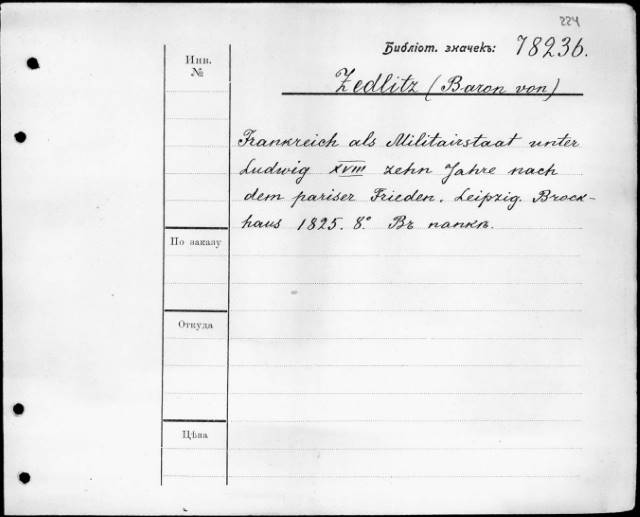 224
Библіот. значекъ: 78236.
Инв.
№
Zedlitz (Baron von)
Frankreich als Militairstaat unter
Ludwig XVIII zehn Jahre nach
dem pariser Frieden. Leipzig. Brock-
haus 1825. 8° Въ папкѣ.
По заказу
Откуда
Цѣна